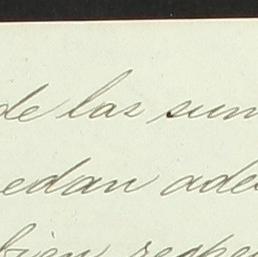 de las sum
edan ade
bien respe